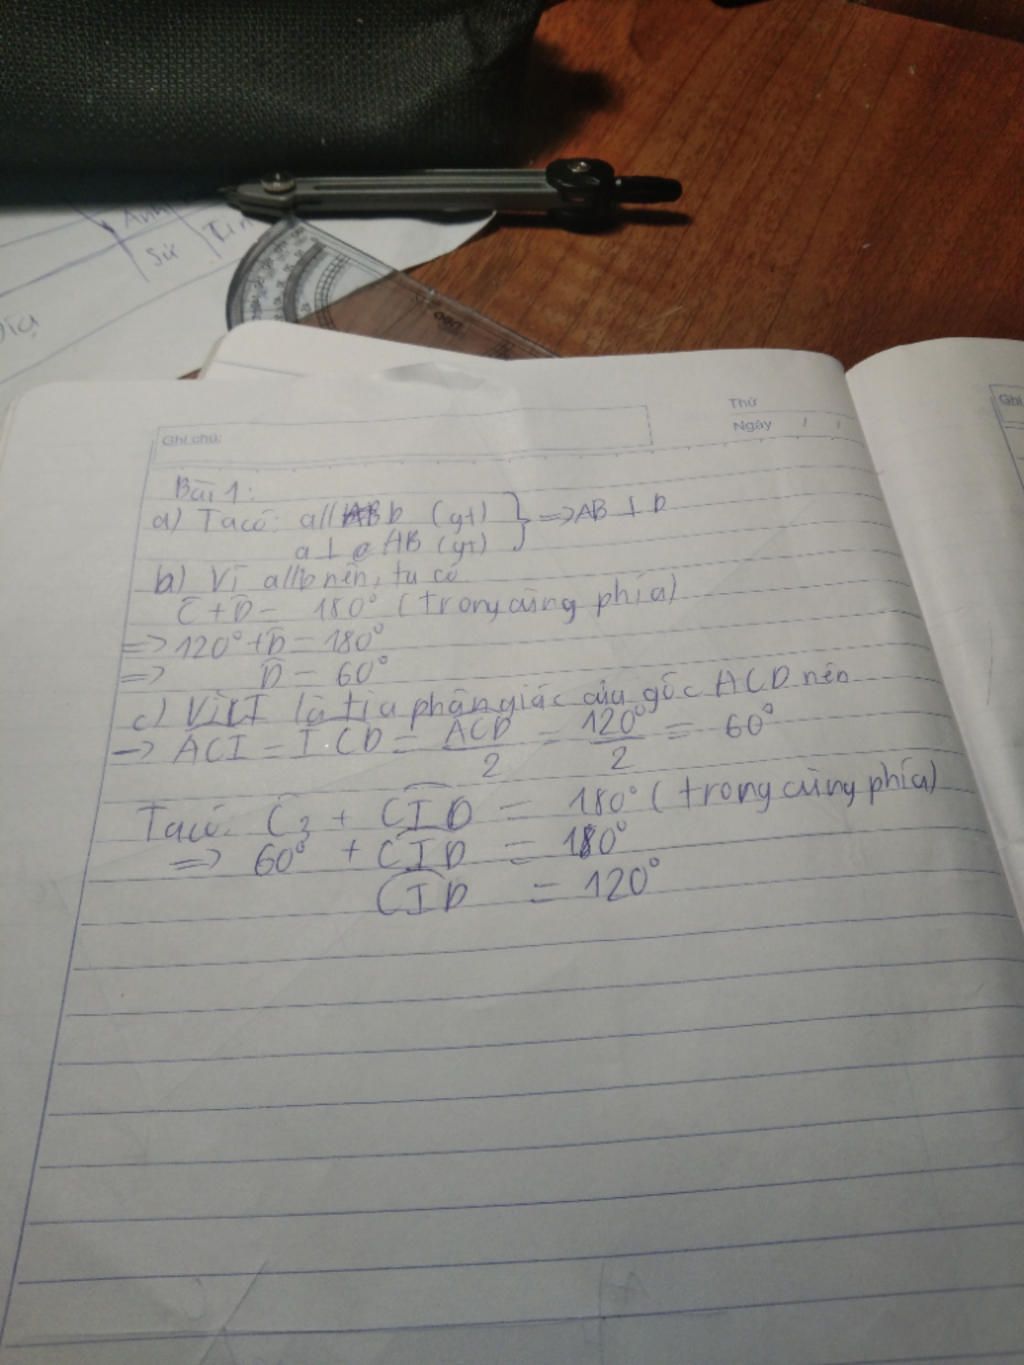 Anh
Sử
Tin
Địa
Ghi chú:
Thứ
Ngày / /
Ghi
Bài 1:
a) Ta có: a//b (gt) } => AB ⊥ b
a ⊥ AB (gt)
b) Vì a//b nên, ta có
C + D = 180° (trong cùng phía)
=> 120° + D = 180°
=> D = 60°
c) Vì CI là tia phân giác của góc ACD nên
=> ACI = ICD = ACD/2 = 120°/2 = 60°
Ta có: C3 + CID = 180° (trong cùng phía)
=> 60° + CID = 180°
CID = 120°